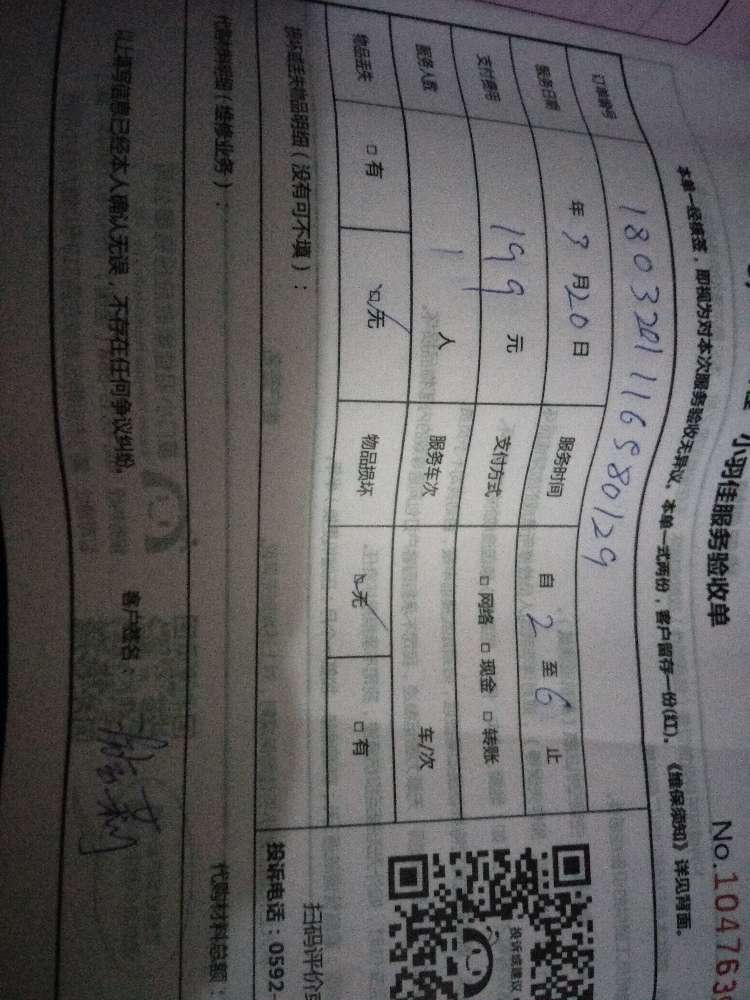 小羽佳服务验收单
No.104763
本单一经核签，即视为对本次服务验收无异议。本单一式两份，客户留存一份(红)。《维保须知》详见背面。
订单编号 1803201116580129
服务日期 年 3 月 20 日 服务时间 自 2 至 6 止
支付费用 199 元 支付方式 □ 网络 □ 现金 □ 转账
服务人数 1 人 服务车次 车/次
物品丢失 □ 有 ☑ 无 物品损坏 ☑ 无 □ 有
损坏或丢失物品明细（没有可不填）：
投诉或建议
扫码评价
投诉电话：0592-
代购材料明细（维修业务）：
代购材料总额：
以上填写信息已经本人确认无误，不存在任何争议纠纷。
客户签名：